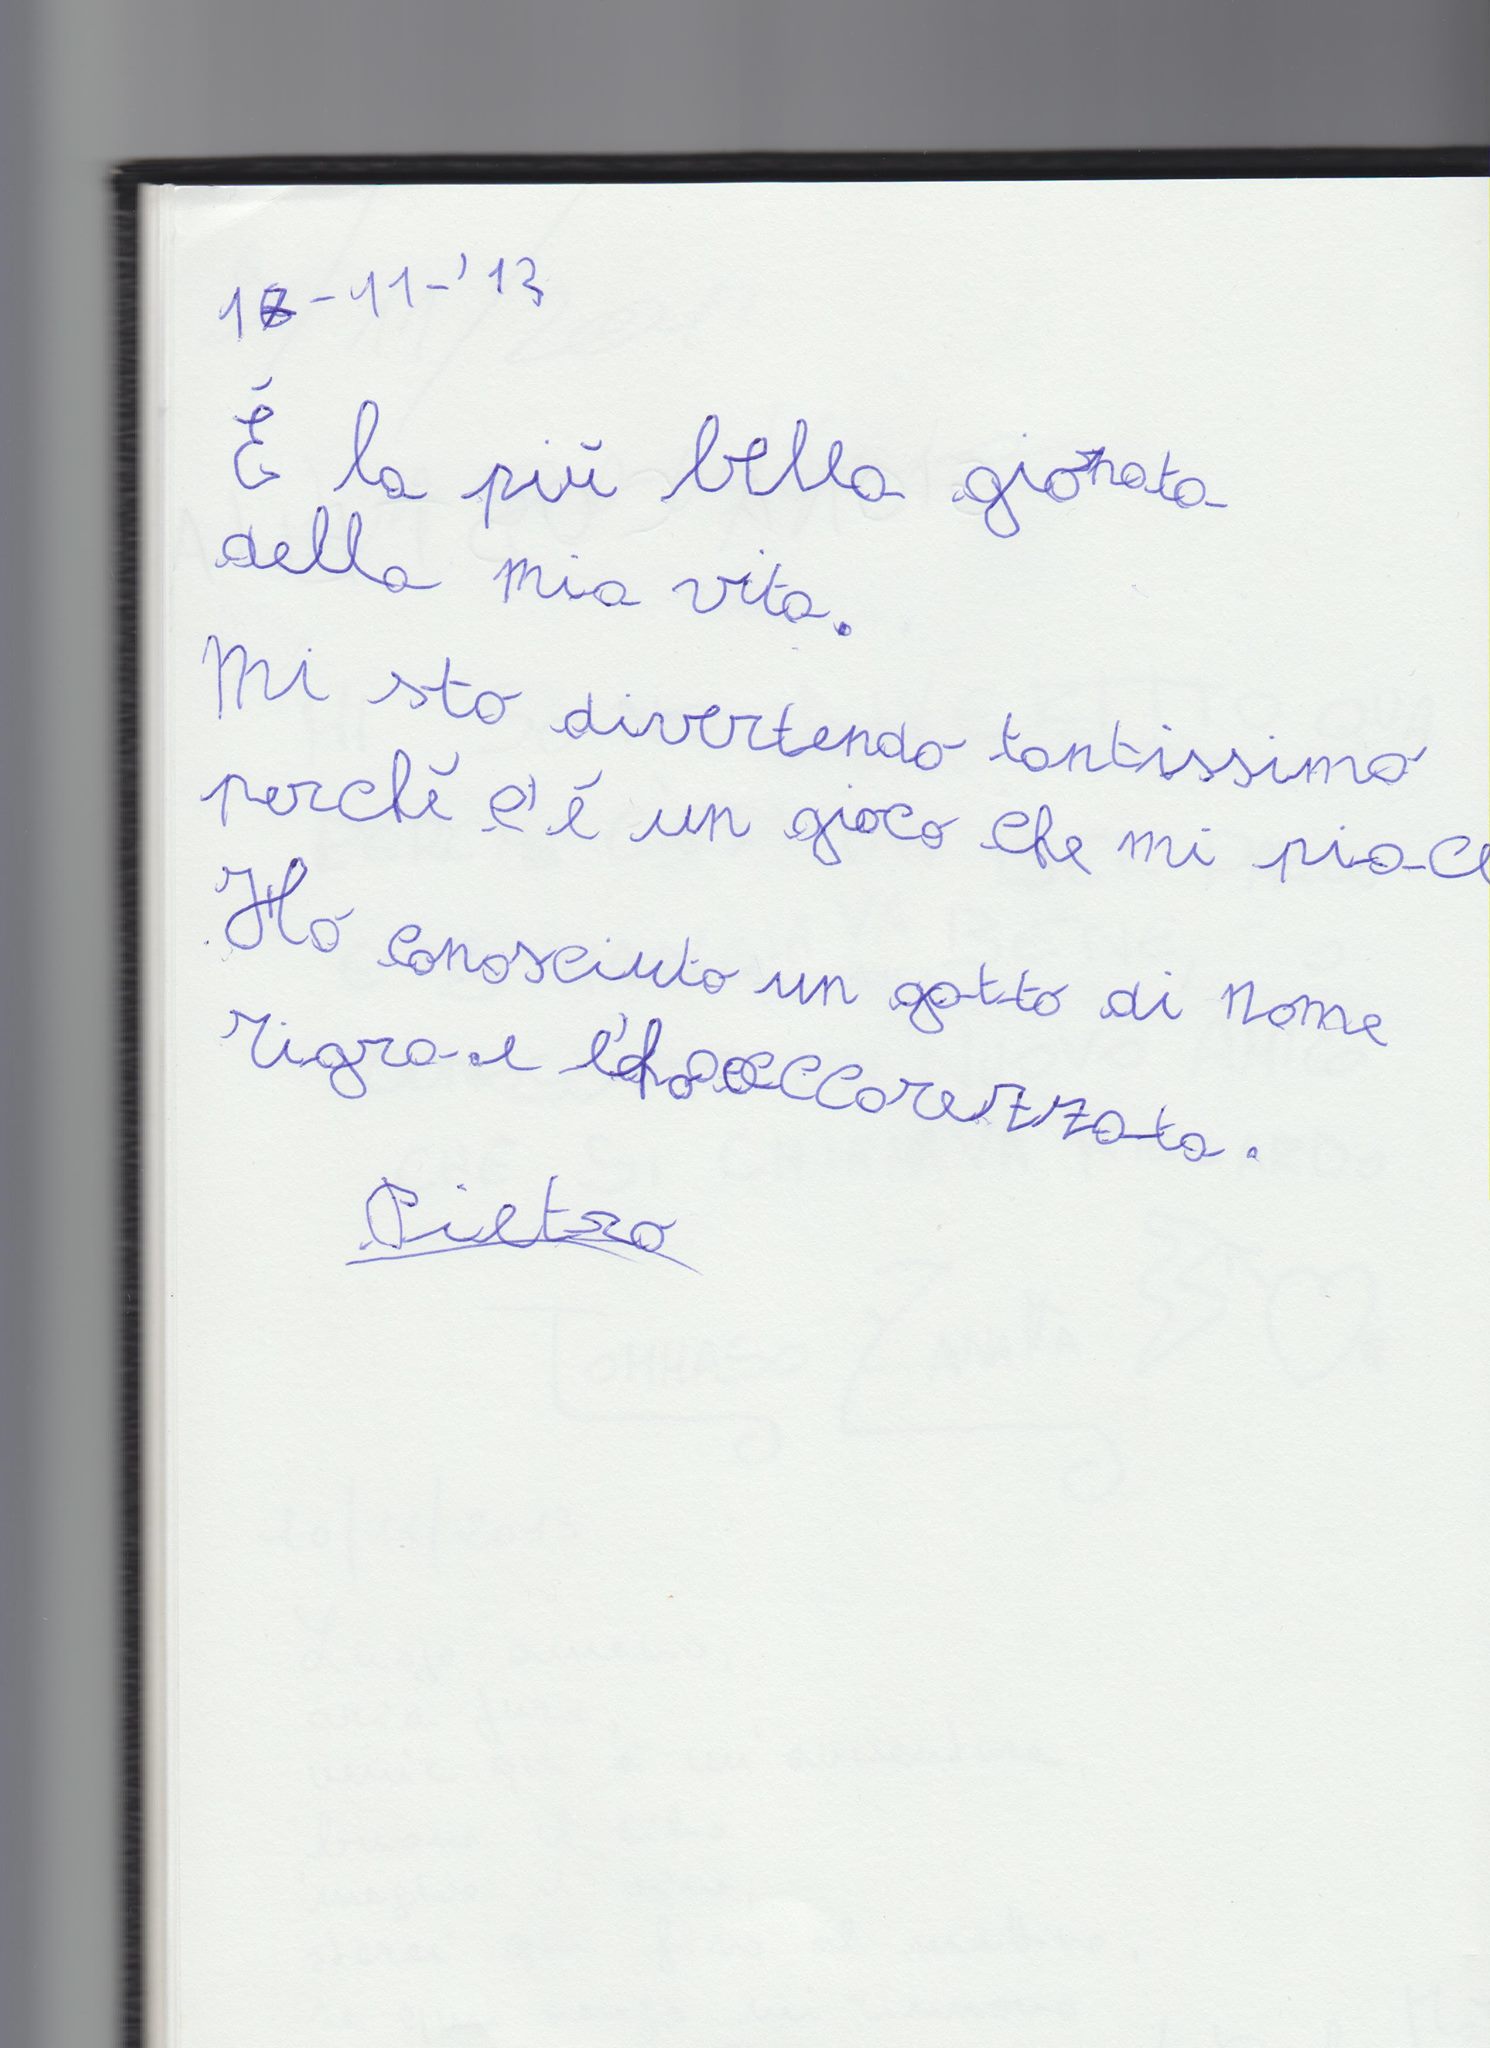 16-11-'13
É la più bella giornata
della mia vita.
Mi sto divertendo tantissimo
perché c'é un gioco che mi piace
Ho conosciuto un gatto di nome
Tigra e l'ho accarezzata.
Pietro